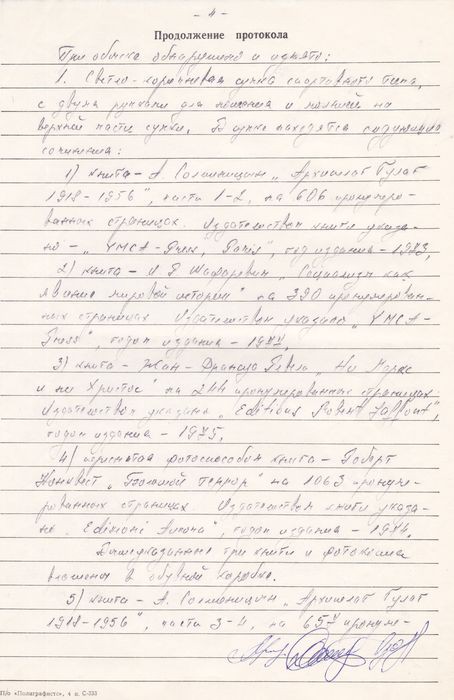 - 4 -
Продолжение протокола
При обыске обнаружено и изъято:
1. Светло-коричневая сумка спортивного типа,
с двумя ручками для ношения и молнией на
верхней части сумки. В сумке находятся следующие
сочинения:
1) книга – А. Солженицын „Архипелаг Гулаг
1918-1956", части 1-2, на 606 пронумеро-
ванных страницах. Издательством книги указа-
но – „YMCA-Press, Paris", год издания – 1973,
2) книга – И Р Шафаревич „Социализм как
явление мировой истории" на 390 пронумерован-
ных страницах Издательством указан „YMCA-
Press", годом издания – 1977.
3) книга – Жан-Франсуа Ревель „Ни Маркс
и ни Христос" на 244 пронумерованных страницах
Издательством указана „Editions Robert Laffont",
годом издания – 1975.
4) отснятая фотоспособом книга – Роберт
Конквест „Большой террор" на 1063 пронуме-
рованных страницах Издательством книги указа-
но „Edizioni Aurora", годом издания – 1974.
Вышеуказанные три книги и фотокопия
вложены в обувной коробке.
5) книга – А. Солженицын „Архипелаг Гулаг
1918-1956", части 3-4, на 657 пронуме-
П/о «Полиграфист», з. С-333